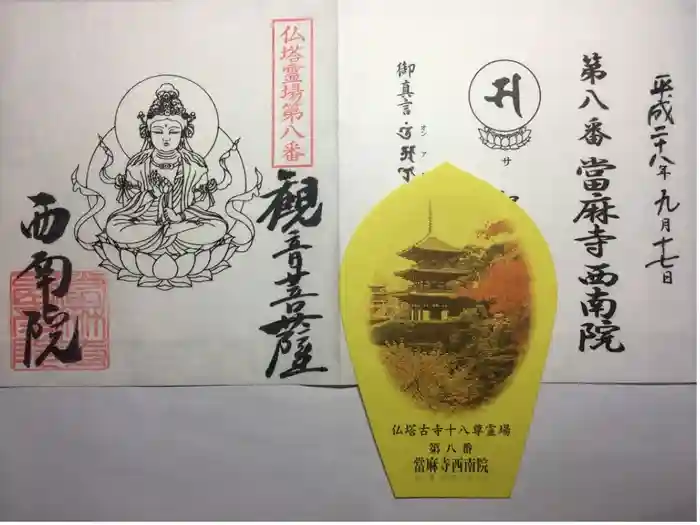 平成二十八年九月十七日
第八番 當麻寺 西南院
サ
御真言・
オン ア
仏塔霊場第八番
観音菩薩
西南院
仏塔古寺十八尊霊場
第八番
當麻寺西南院